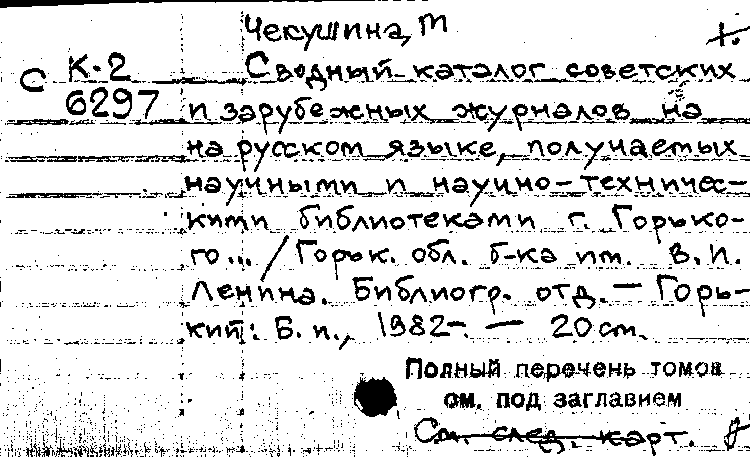 Чекушина, М
1.
С К-2 Сводный каталог советских
6297 и зарубежных журналов на
на русском языке, получаемых
научными и научно-техничес-
кими библиотеками г. Горько-
го... / Горьк. обл. б-ка им. В.И.
Ленина. Библиогр. отд. — Горь-
кий: Б.и., 1982-. — 20 см.
Полный перечень томов
см. под заглавием
См. след. карт.